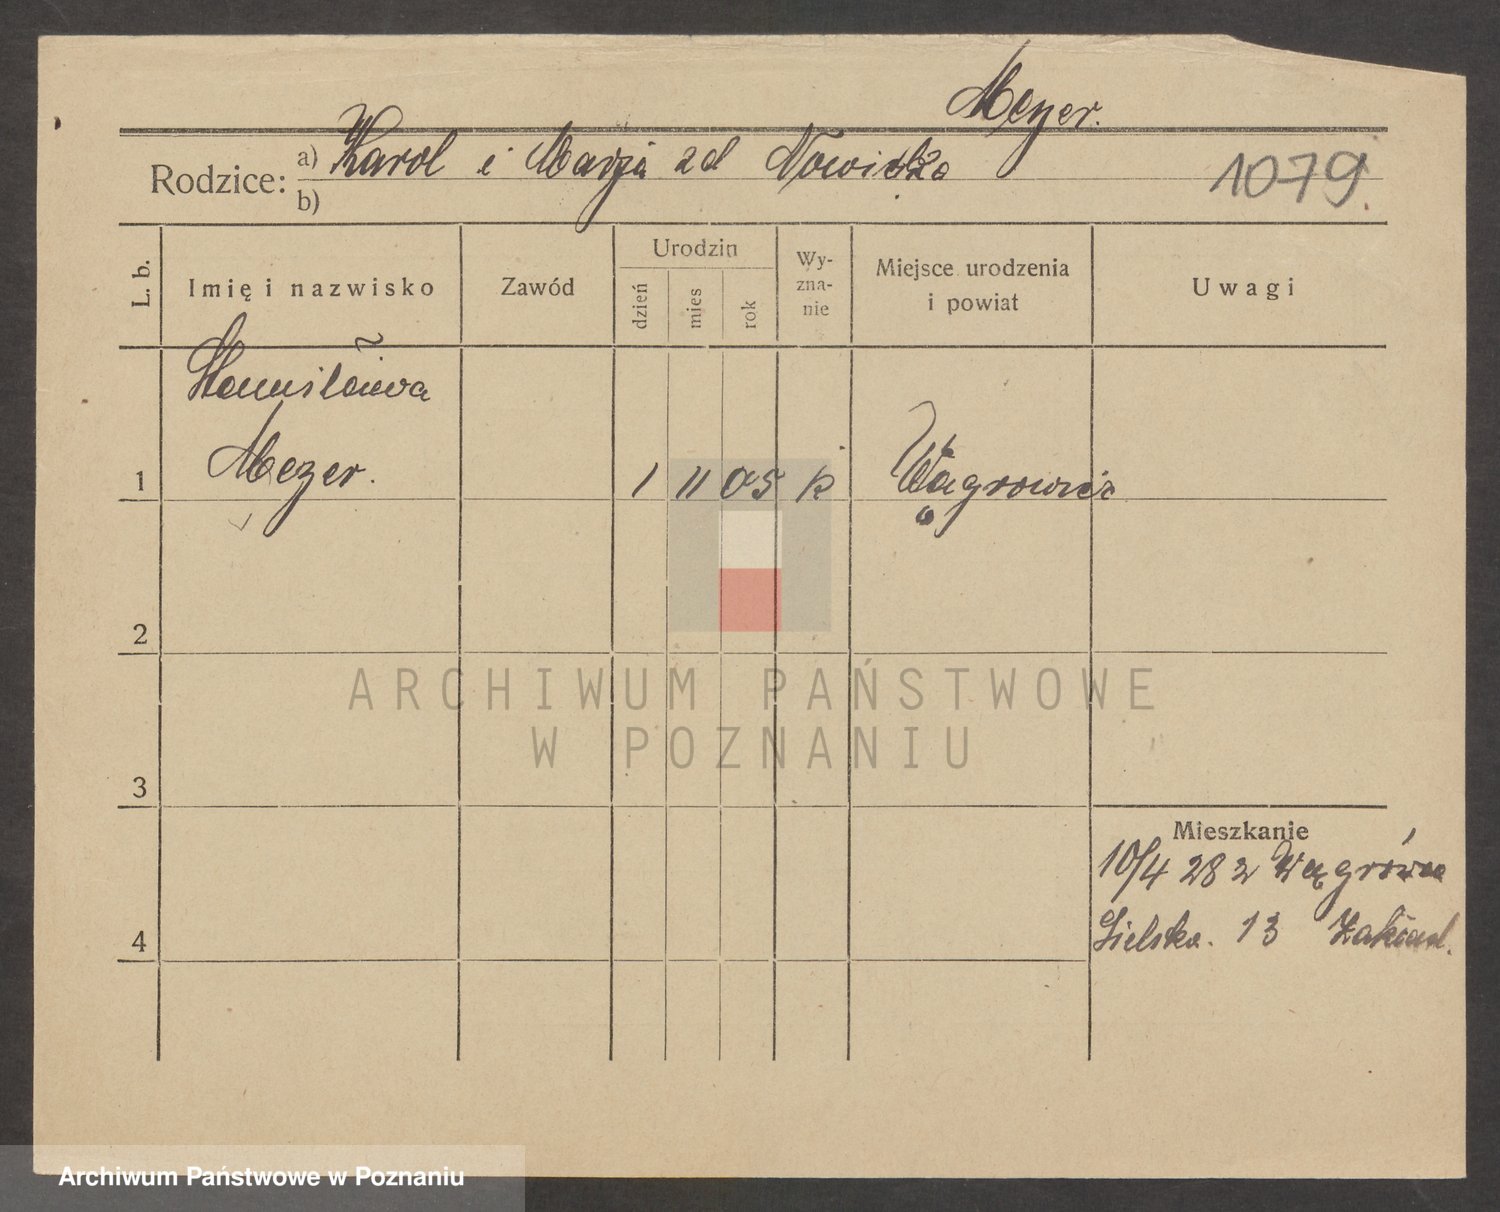 Meyer.
Rodzice: a) Karol i Marja zd Nowicka
1079
b)
L. b.
Imię i nazwisko
Zawód
Urodzin
dzień
mies
rok
Wy-
zna-
nie
Miejsce urodzenia
i powiat
Uwagi
Stanisława
Mezer.
1
1 11 05 k
Wągrowiec
2
ARCHIWUM PAŃSTWOWE
W POZNANIU
3
Mieszkanie
10/4 28 z Wągrówca
13 Zakład.
4
Archiwum Państwowe w Poznaniu